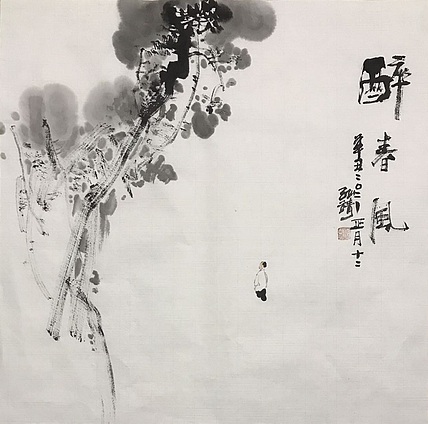 醉春风
辛丑二〇二一
正月十二